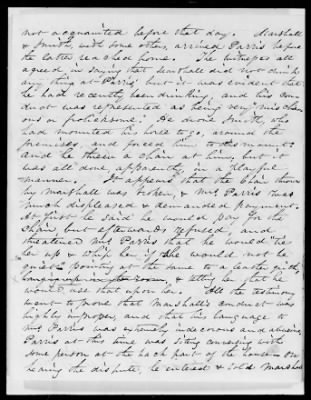 not acquainted before that day. Marshall
& Smith, with some others, arrived Parris before
the latter reached home. The witnesses all
agreed in saying that Marshall did not drink
any thing at Parris' but it was evident that
he had recently been drinking, and his con
duct was represented as being very mischiev
ous or frolicksome. He drove Smith, who
had mounted his horse to go, around the
premises, and forced him to dismount
and he threw a chair at him, but it
was all done, apparently, in a playful
manner. It appears that the chair thrown
by Marshall was broken, & Mrs Parris was
much displeased & demanded payment.
At first he said he would pay for the
chair, but afterwards refused, and
threatened Mrs Parris that he would "tie
her up & whip her, if she would not be
quiet" pointing at the same to a leather
hanging up in the room, & telling her that he
would use that upon her. All the testimony
went to prove that Marshall's conduct was
highly improper, and that his language to
Mrs Parris was extremely indecorous and abusive.
Parris at this time was sitting conversing with
some person at the back part of the house - On
hearing the dispute, he entered & told Marshall